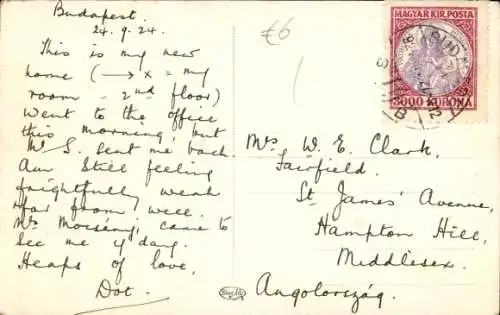 Budapest.
24.9.24.
This is my new
home (→ x = my
room - 2nd floor)
Went to the office
this morning, but
Mr S. sent me back
Am still feeling
frightfully weak
& far from well.
Mrs came to
see me y'day.
Heaps of love,
Dot.
£6
MAGYAR KIR. POSTA
BUDAPEST
3000 KORONA
Mrs W. E. Clark,
Fairfield.
St. James' Avenue,
Hampton Hill,
Middlesex.
Angolország.